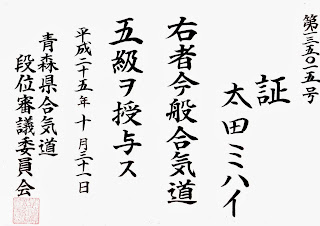 第三五〇一五号
証
太田ミハイ
右者今般合気道
五級ヲ授与ス
平成二十五年十月三十一日
青森県合気道
段位審議委員会